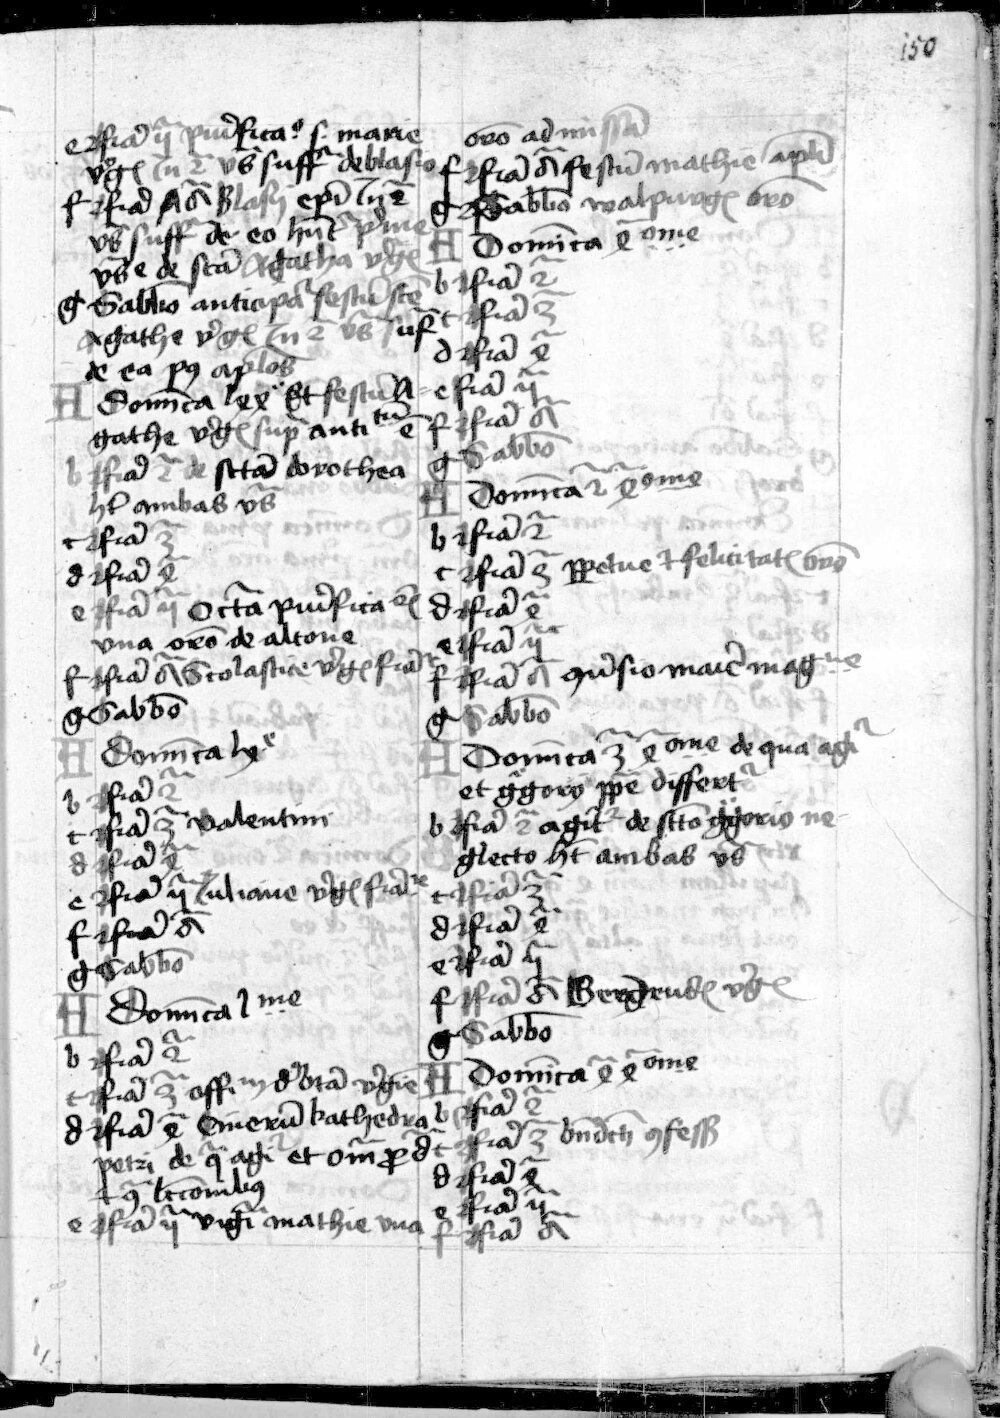 150
e feria v purifica° s. marie
virg in 2 vs suffr de blasio
f feria 6 Blasij epi in 2
vs suffr de eo hnt prime
vs e de sca Agatha virg
g Sabbo anticipat festu sce
Agathe virg in 2 vs suffr
de ea post aplos
A Domica lxx Et festu A=
gathe virg sup anti
b feria 2 de scta dorothea
ht ambas vs
c feria 3
d feria 4
e feria v Octa purifica
vna oro de altone
f feria 6 Scolastice virg
g Sabbo
A Domica lx
b feria 2
c feria 3 valentini
d feria 4
e feria v Juliane virg
f feria 6
g Sabbo
A Domica l me
b feria 2
c feria 3
d feria 4 Cineru kathedra
petri de q agit et
e feria v vigi mathie vna
oro ad missa
f feria 6 festu mathie apli
g Sabbo walpurg oro
A Domica 4 ome
b feria 2
c feria 3
d feria 4
e feria v
f feria 6
g Sabbo
A Domica 2 4 ome
b feria 2
c feria 3 ppetue et felicitat oro
d feria 4
e feria v
f feria 6
g Sabbo
A Domica 3 4 ome de qua agit
et ggory ppe differt
b feria 2 agit de scto ggorio ne=
glecto ht ambas vs
c feria 3
d feria 4
e feria v
f feria 6 Gerdrud virg
g Sabbo
A Domica 4 4 ome
b feria 2
c feria 3 bndcti 9fess
d feria 4
e feria v
f feria 6